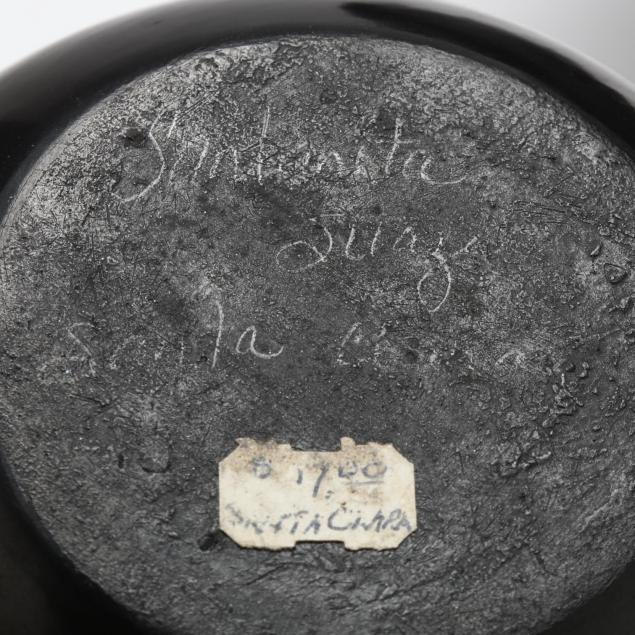 Santanita
Suazo
Santa Clara
$ 17.00
SANTA CLARA